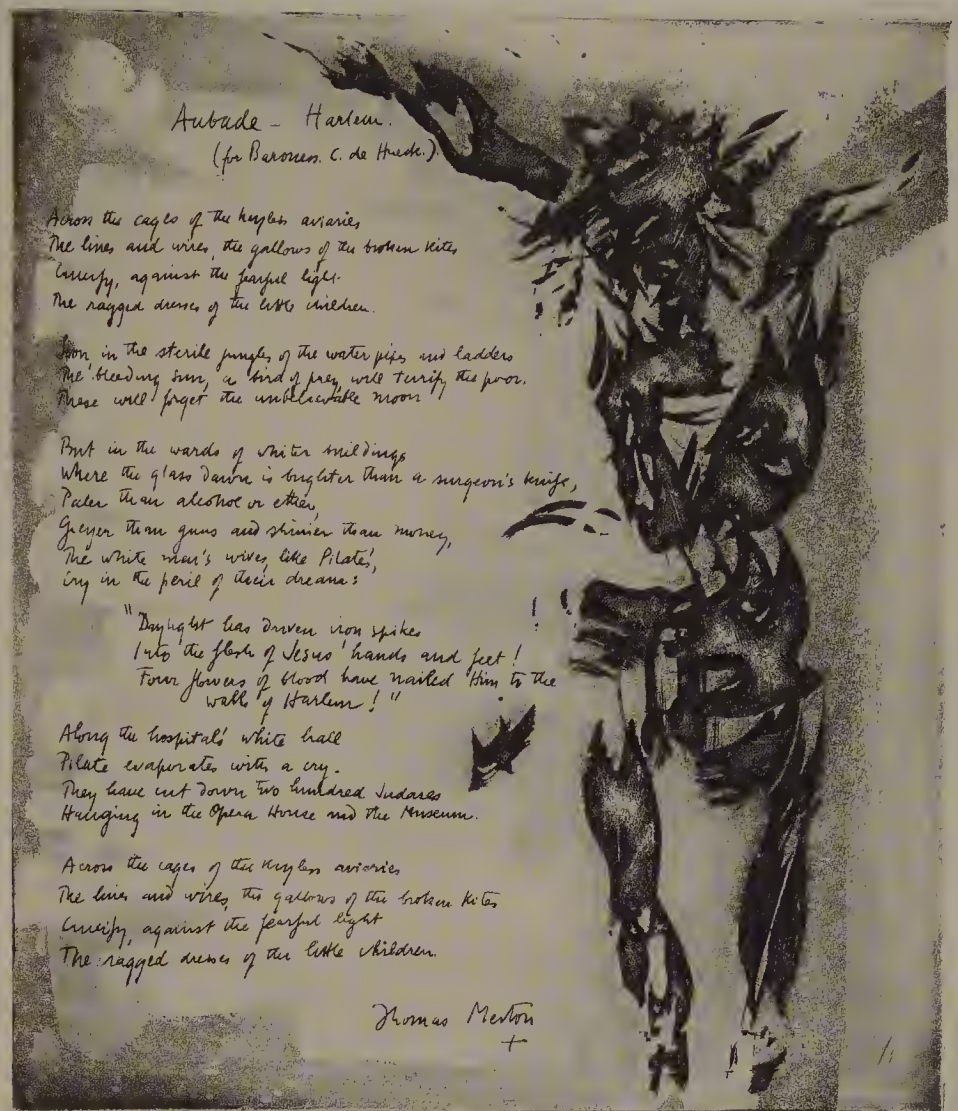 Aubade – Harlem.
(for Baroness. C. de Hueck.)
Across the cages of the keyless aviaries
The lines and wires, the gallows of the broken kites
Crucify, against the fearful light
The ragged dresses of the little children.
Soon, in the sterile jungles of the water pipes and ladders
The bleeding sun, a bird of prey, will terrify the poor.
These will forget the unbelievable moon
But in the wards of whiter buildings
Where the glass dawn is brighter than a surgeon's knife,
Paler than alcohol or ether,
Greyer than guns and shinier than money,
The white men's wives, like Pilate's,
Cry in the peril of their dreams:
"Daylight has driven iron spikes
Into the flesh of Jesus' hands and feet!
Four flowers of blood have nailed Him to the
walls of Harlem!"
Along the hospitals' white hall
Pilate evaporates with a cry.
They have cut down two hundred Judases
Hanging in the Opera House and the Museum.
Across the cages of the keyless aviaries
The lines and wires, the gallows of the broken kites
Crucify, against the fearful light
The ragged dresses of the little children.
Thomas Merton
+